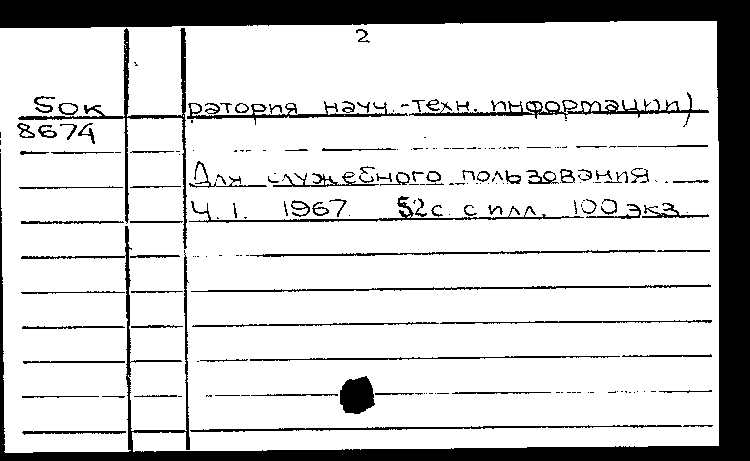 2
50к ратория науч.-техн. информации)
8674
Для служебного пользования
Ч. 1. 1967 52с. с илл. 100 экз.